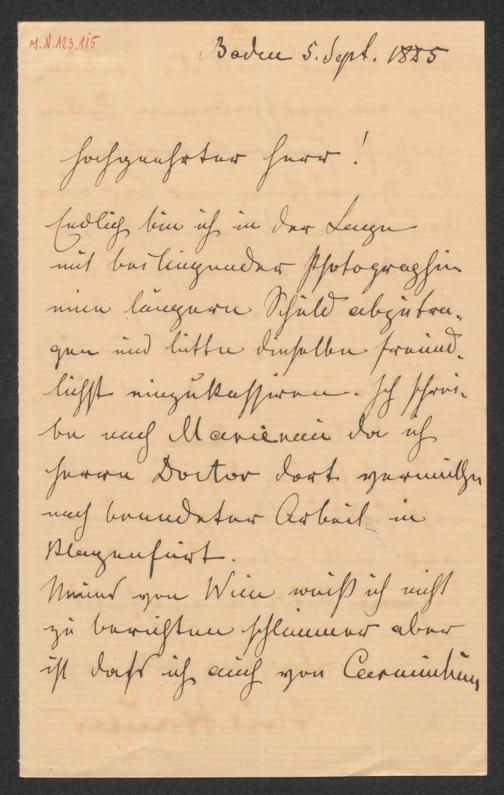 M.N.123.115
Baden 5. Sept. 1885
Hochgeehrter Herr!
Endlich bin ich in der Lage
mit beiliegender Photographie
eine längere Schuld abzutra-
gen und bitte dieselbe freund-
lichst einzukassiren. Ich schrei-
be nach da ich
Herrn Doctor dort vermuthe
nach beendeter Arbeit in
Klagenfurt.
Neues von Wien weiß ich nicht
zu berichten schlimmer aber
ist daß ich auch von Carnuntum